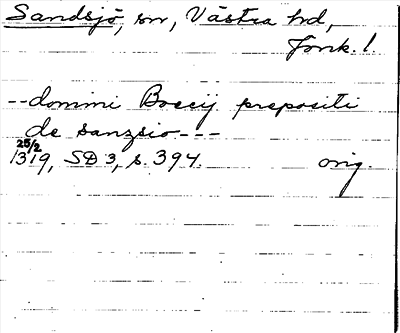 Sandsjö, sn, Västra hd,
Jönk. l
-- domini Boecij prepositi
de sanzsio ---
25/2
1319, SD 3, s. 394. orig.